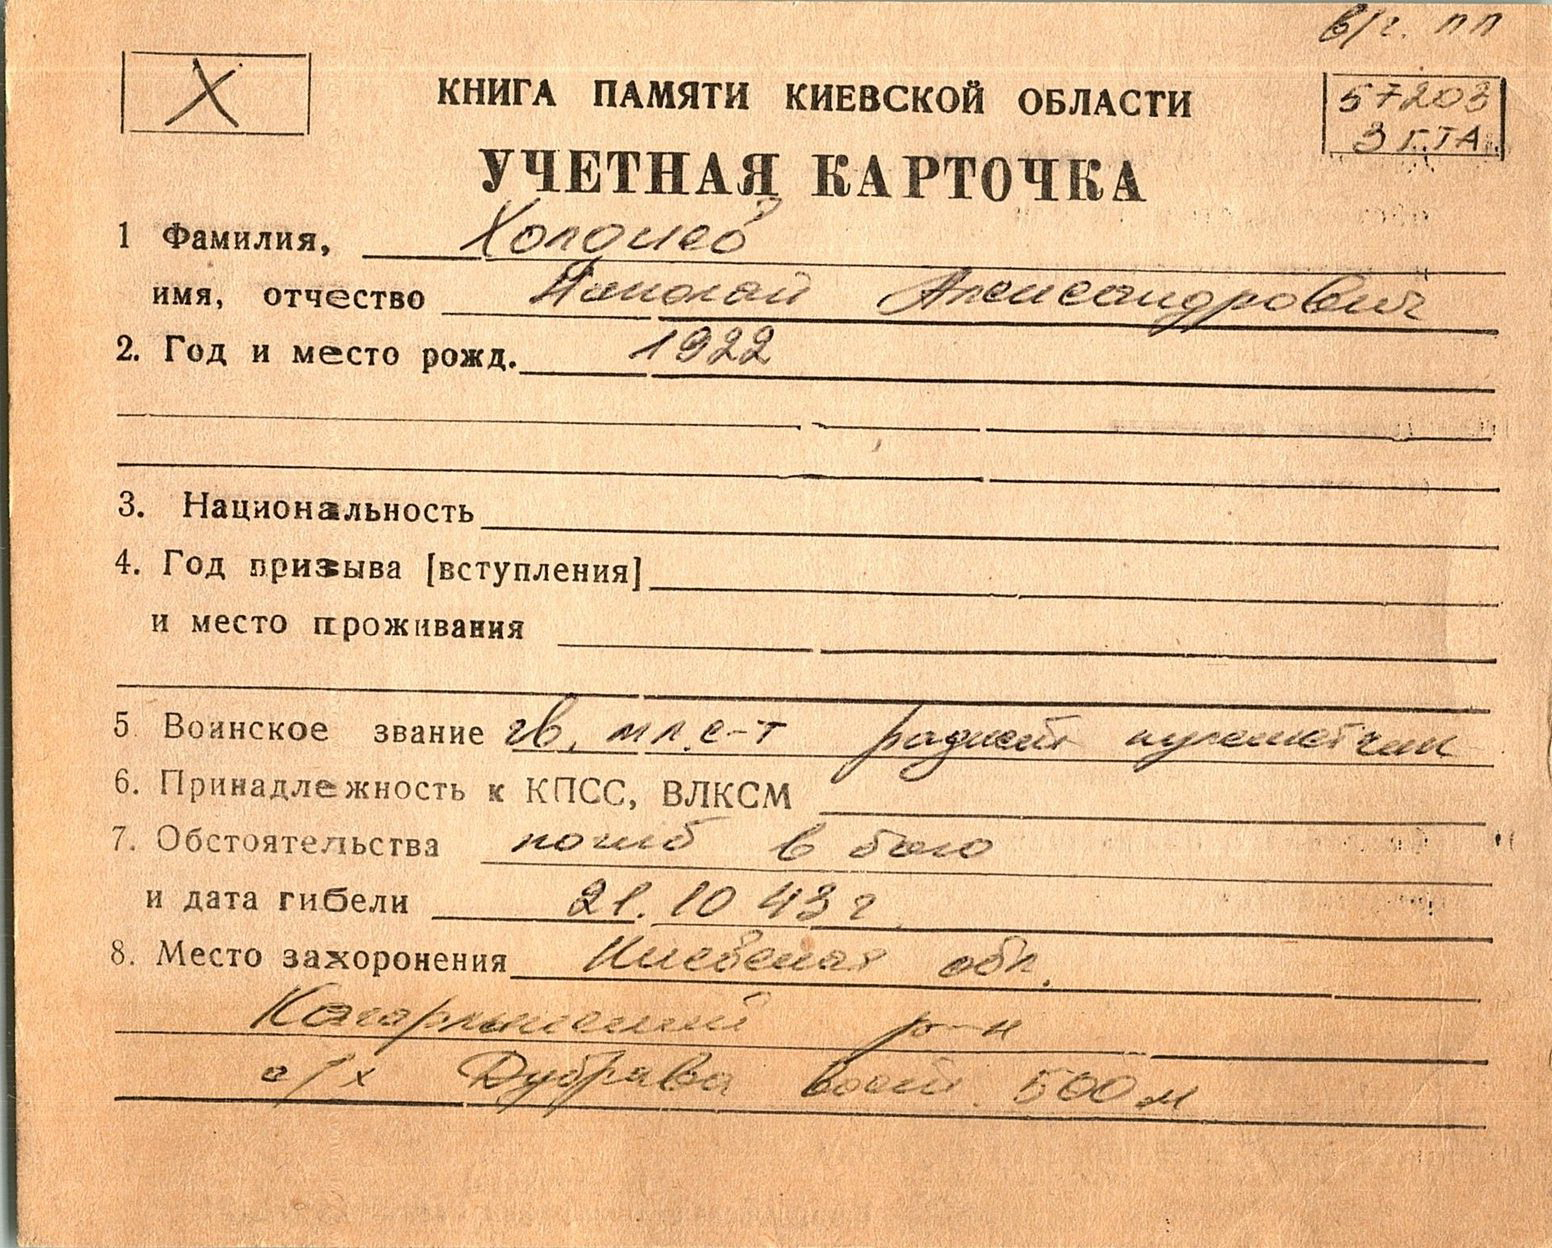 в/ч. пп
Х
КНИГА ПАМЯТИ КИЕВСКОЙ ОБЛАСТИ
57203
3 Г.ТА.
УЧЕТНАЯ КАРТОЧКА
1 Фамилия,
имя, отчество Николай Александрович
2. Год и место рожд. 1922
3. Национальность
4. Год призыва [вступления]
и место проживания
5 Воинское звание гв. мл. с-т радист пулеметчик
6. Принадлежность к КПСС, ВЛКСМ
7. Обстоятельства погиб в бою
и дата гибели 21. 10 43 г.
8. Место захоронения Киевская обл.
Кагарлыкский р-н
с/х Дубрава вост. 500 м